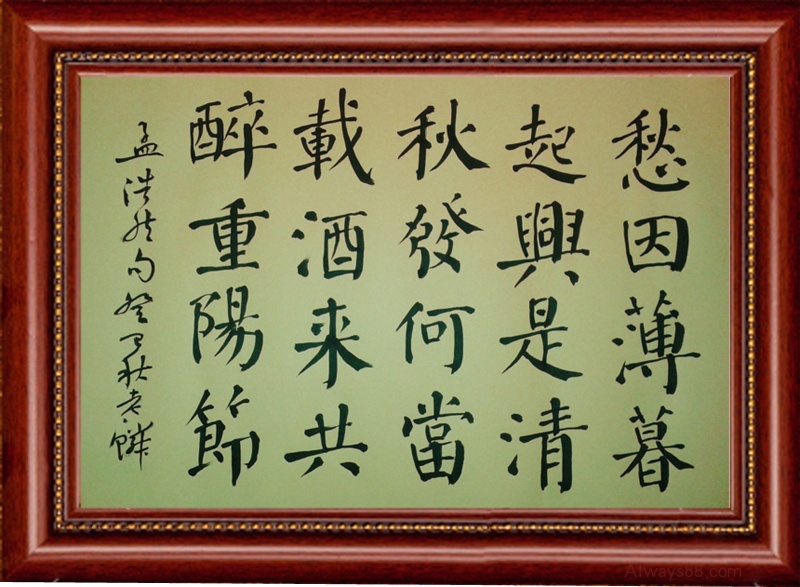 愁因薄暮
起興是清
秋發何當
載酒来共
醉重陽節
孟浩然句癸巳秋老鱗
Always88.com